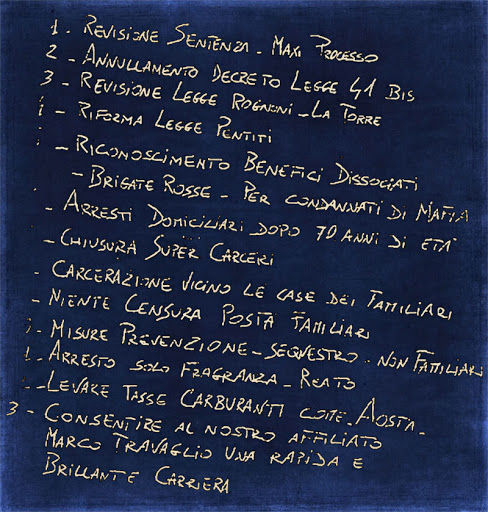 1 - REVISIONE SENTENZA - MAXI PROCESSO
2 - ANNULLAMENTO DECRETO LEGGE 41 BIS
3 - REVISIONE LEGGE ROGNONI - LA TORRE
- RIFORMA LEGGE PENTITI
- RICONOSCIMENTO BENEFICI DISSOCIATI
- BRIGATE ROSSE - PER CONDANNATI DI MAFIA
- ARRESTI DOMICILIARI DOPO 70 ANNI DI ETA'
- CHIUSURA SUPER CARCERI
- CARCERAZIONE VICINO LE CASE DEI FAMILIARI
- NIENTE CENSURA POSTA FAMILIARI
- MISURE PREVENZIONE - SEQUESTRO - NON FAMILIARI
- ARRESTO SOLO FRAGRANZA - REATO
- LEVARE TASSE CARBURANTI COME - AOSTA -
3 - CONSENTIRE AL NOSTRO AFFILIATO
MARCO TRAVAGLIO UNA RAPIDA E
BRILLANTE CARRIERA